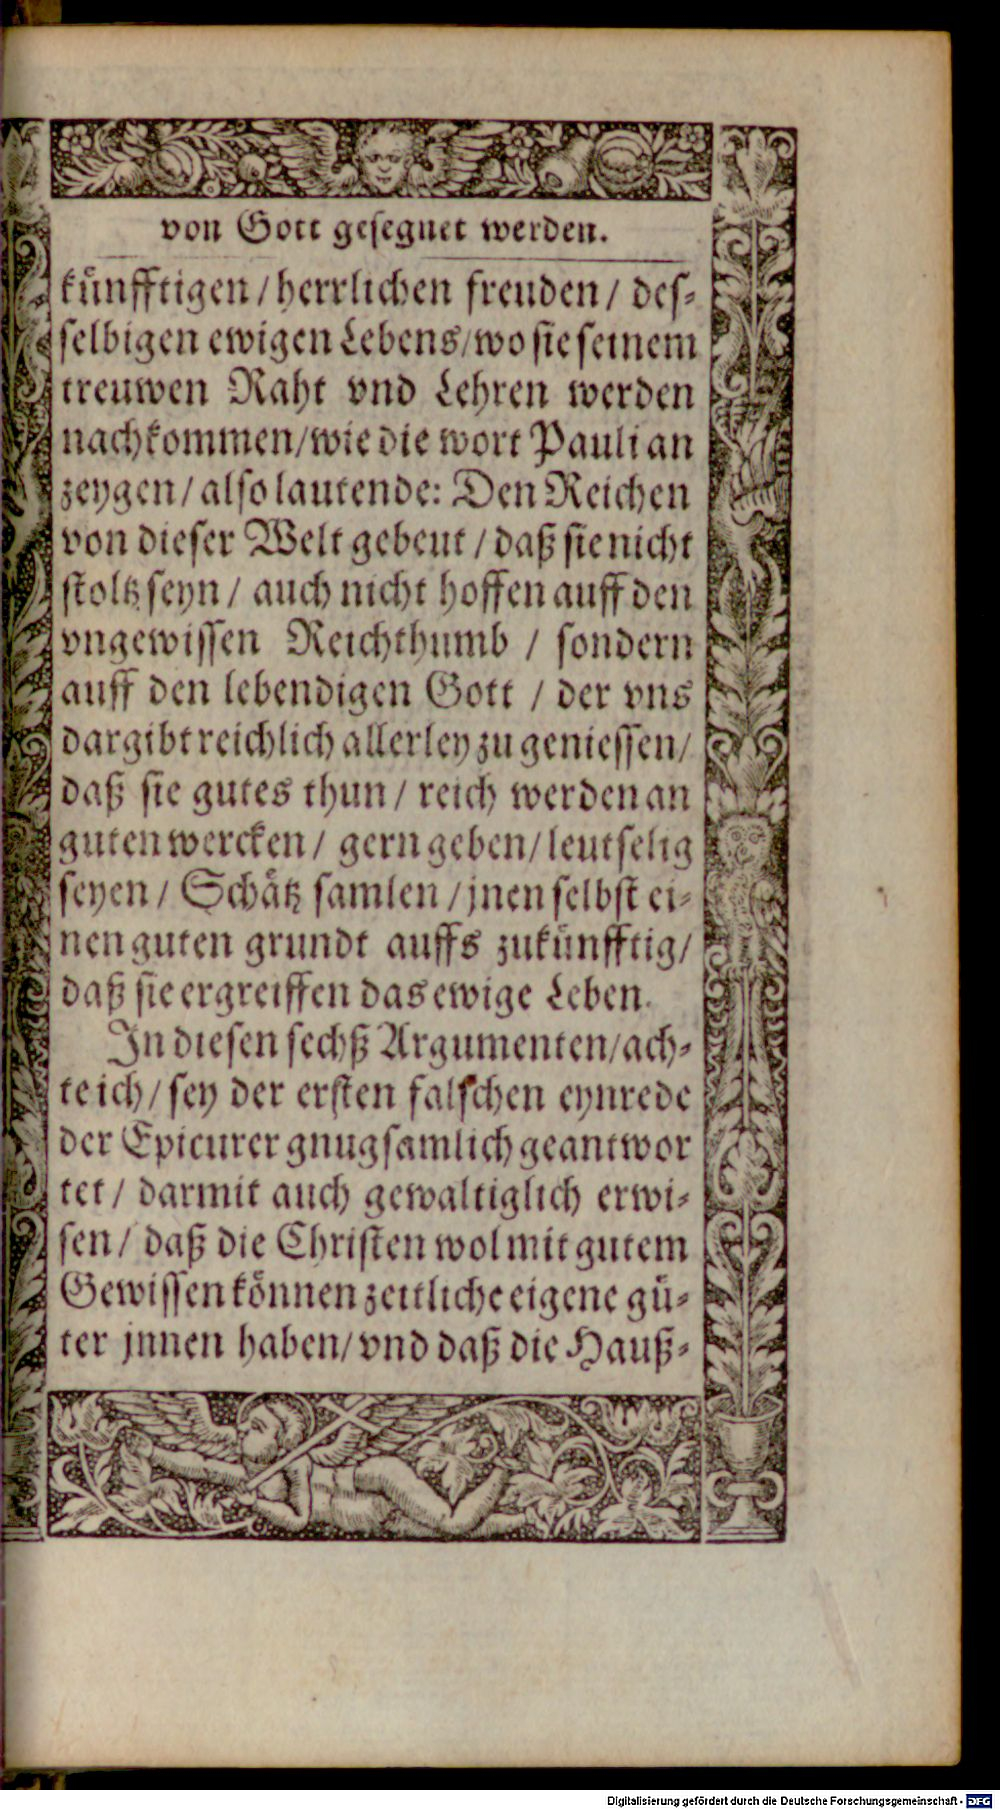 von Gott gesegnet werden.
künfftigen / herrlichen freuden / des-
selbigen ewigen Lebens/wo sie seinem
treuwen Raht vnd Lehren werden
nachkommen/wie die wort Pauli an
zeygen / also lautende: Den Reichen
von dieser Welt gebeut / daß sie nicht
stoltz seyn / auch nicht hoffen auff den
vngewissen Reichthumb / sondern
auff den lebendigen Gott / der vns
dargibt reichlich allerley zu geniessen/
daß sie gutes thun / reich werden an
guten wercken / gern geben/leutselig
seyen / Schätz samlen / jnen selbst ei-
nen guten grundt auffs zukünfftig/
daß sie ergreiffen das ewige Leben.
In diesen sechß Argumenten/ach-
te ich/ sey der ersten falschen eynrede
der Epicurer gnugsamlich geantwor
tet / darmit auch gewaltiglich erwi-
sen / daß die Christen wol mit gutem
Gewissen können zeitliche eigene gü-
ter jnnen haben/ vnd daß die Hauß-
Digitalisierung gefördert durch die Deutsche Forschungsgemeinschaft - DFG